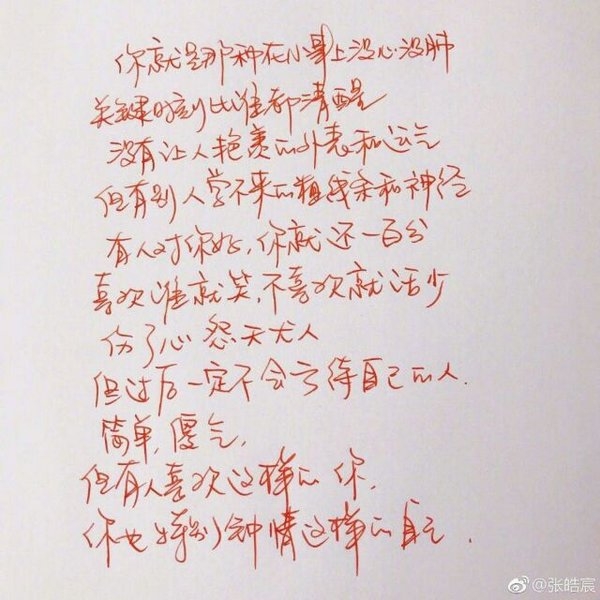 你就是那种在小事上没心没肺
关键时刻比谁都清醒
没有让人艳羡的外表和运气
但有别人学不来的粗线条和神经
有人对你好,你就还一百分
喜欢谁就笑,不喜欢就话少
伤了心怨天尤人
但过后一定不会亏待自己的人.
简单,傻气,
但有人喜欢这样的你,
你也特别钟情这样的自己.
@张皓宸